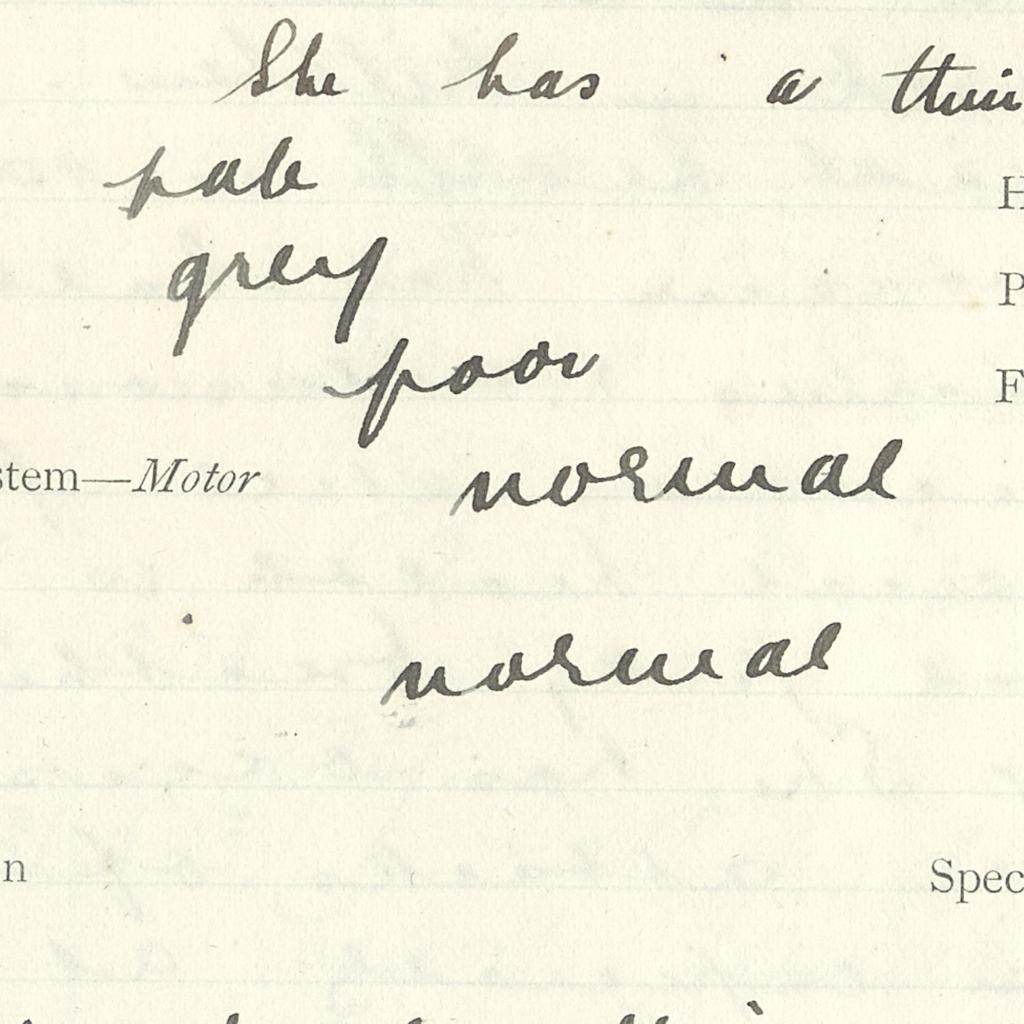 She has a thin
pale H
grey P
poor F
stem—Motor normal
normal
n Spec